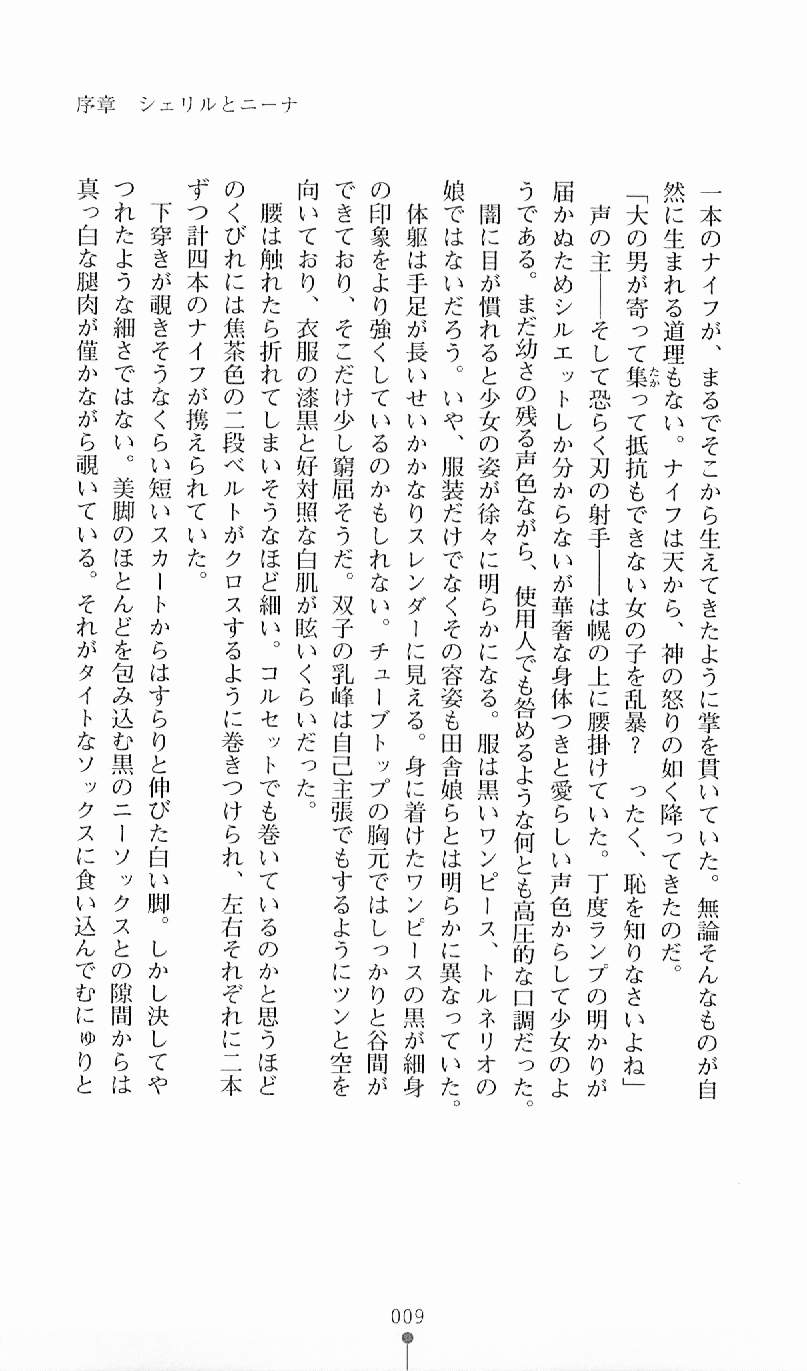 序章　シェリルとニーナ
一本のナイフが、まるでそこから生えてきたように掌を貫いていた。無論そんなものが自
然に生まれる道理もない。ナイフは天から、神の怒りの如く降ってきたのだ。
「大の男が寄って集って抵抗もできない女の子を乱暴？　ったく、恥を知りなさいよね」
たか
　声の主――そして恐らく刃の射手――は幌の上に腰掛けていた。丁度ランプの明かりが
届かぬためシルエットしか分からないが華奢な身体つきと愛らしい声色からして少女のよ
うである。まだ幼さの残る声色ながら、使用人でも咎めるような何とも高圧的な口調だった。
　闇に目が慣れると少女の姿が徐々に明らかになる。服は黒いワンピース、トルネリオの
娘ではないだろう。いや、服装だけでなくその容姿も田舎娘らとは明らかに異なっていた。
　体躯は手足が長いせいかかなりスレンダーに見える。身に着けたワンピースの黒が細身
の印象をより強くしているのかもしれない。チューブトップの胸元ではしっかりと谷間が
できており、そこだけ少し窮屈そうだ。双子の乳峰は自己主張でもするようにツンと空を
向いており、衣服の漆黒と好対照な白肌が眩いくらいだった。
　腰は触れたら折れてしまいそうなほど細い。コルセットでも巻いているのかと思うほど
のくびれには焦茶色の二段ベルトがクロスするように巻きつけられ、左右それぞれに二本
ずつ計四本のナイフが携えられていた。
　下穿きが覗きそうなくらい短いスカートからはすらりと伸びた白い脚。しかし決してや
つれたような細さではない。美脚のほとんどを包み込む黒のニーソックスとの隙間からは
真っ白な腿肉が僅かながら覗いている。それがタイトなソックスに食い込んでむにゅりと
009